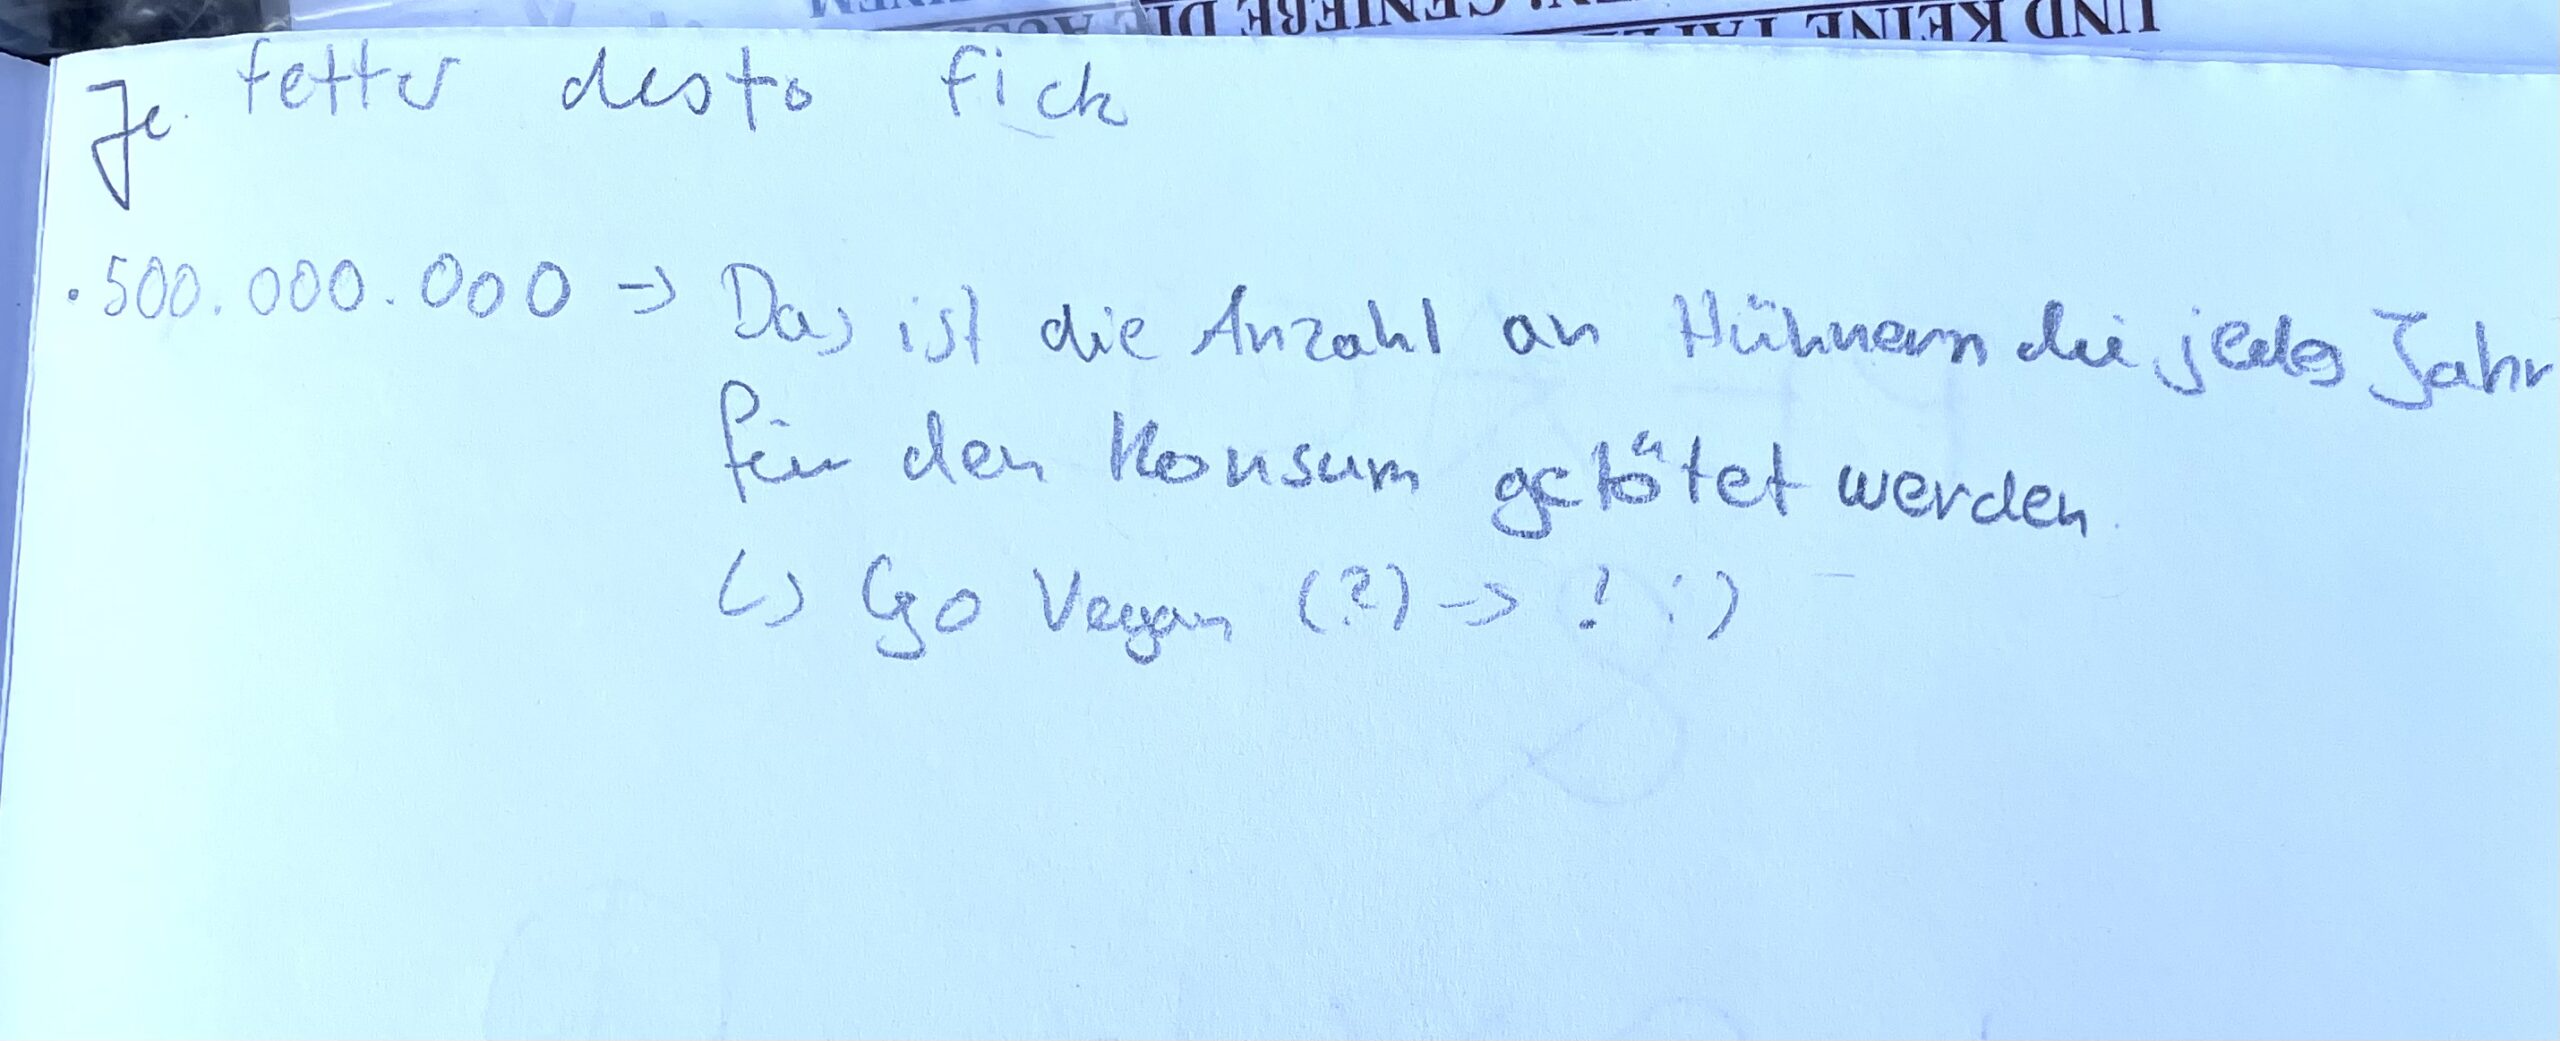 UND KEINE
Je fetter desto fick
• 500.000.000 -> Das ist die Anzahl an Hühnern die jedes Jahr
für den Konsum getötet werden.
↳ Go Vegan (?) -> ! :)